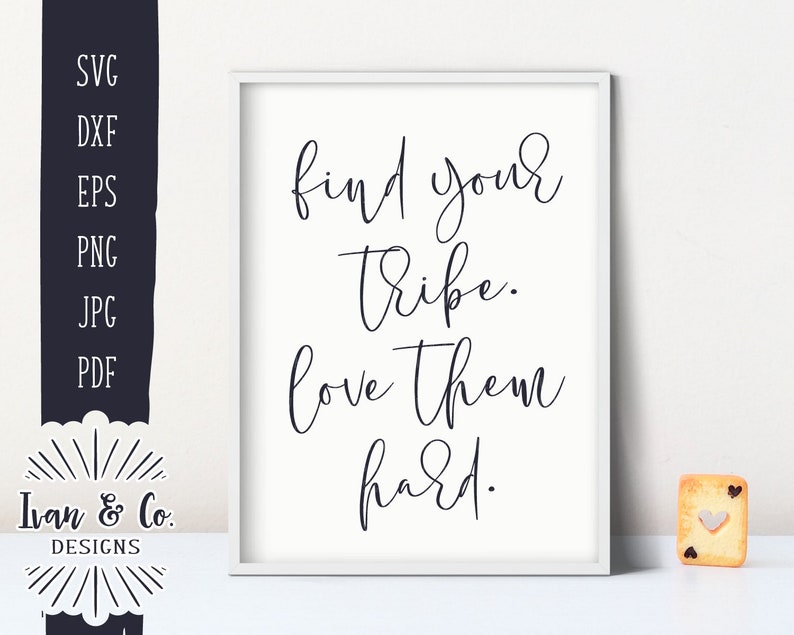 SVG
DXF
EPS
PNG
JPG
PDF
Ivan & Co.
DESIGNS
find your
tribe.
love them
hard.